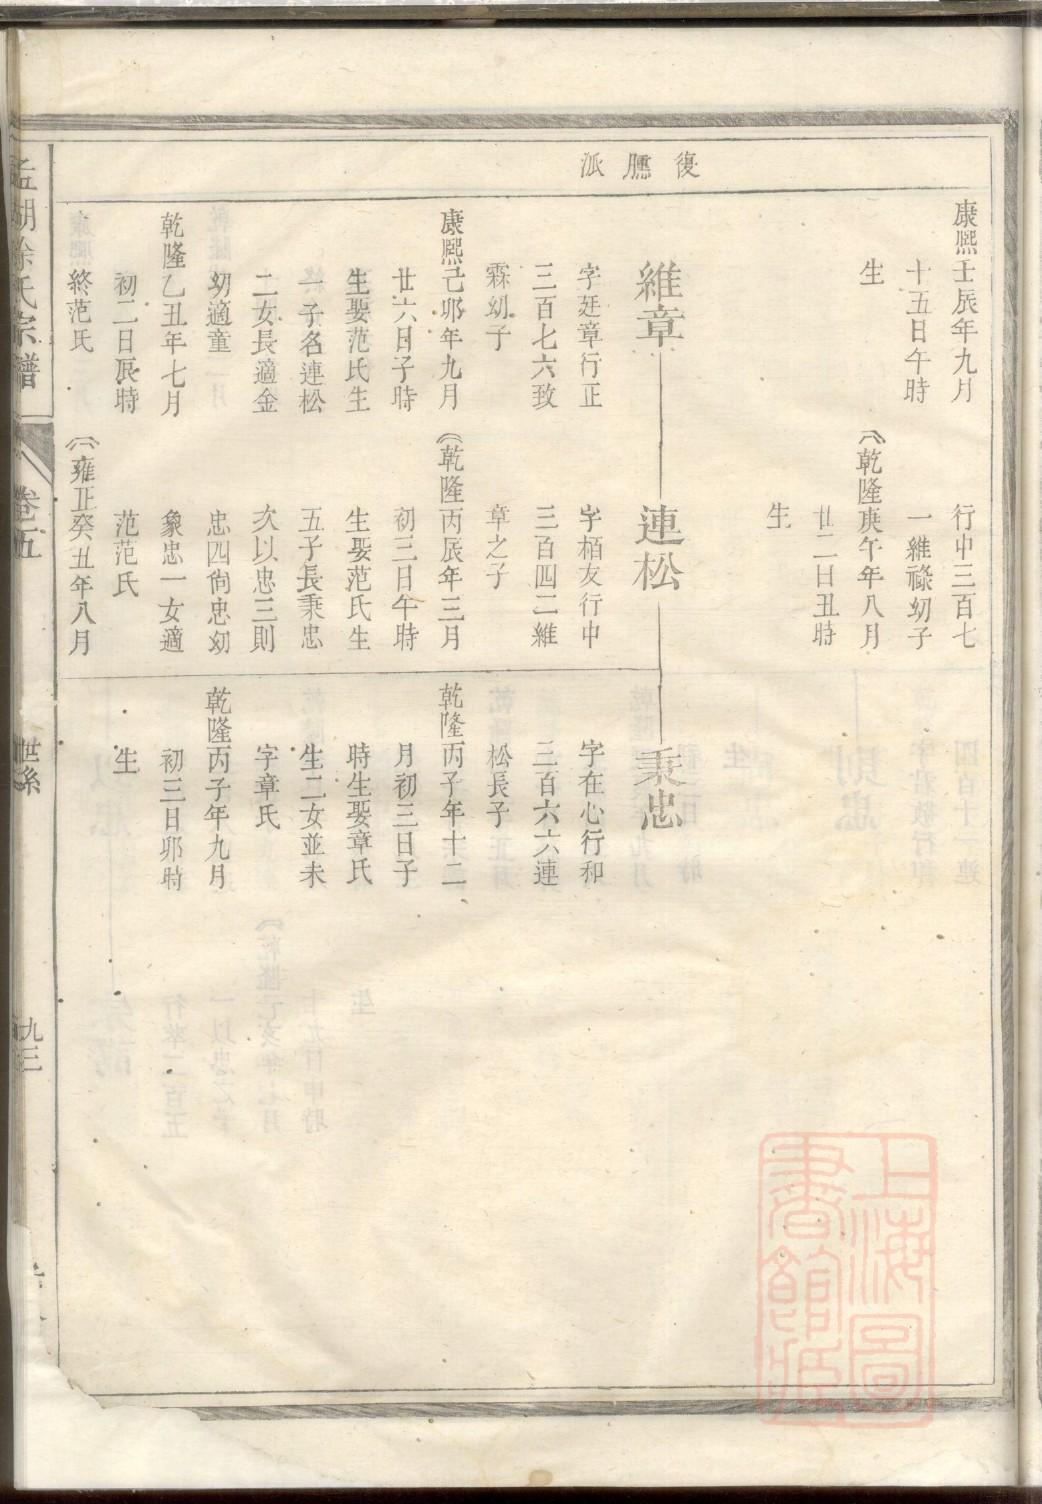 復䐑派
康熙壬辰年九月
十五日午時
生
行中三百七
一維祿幼子
乾隆庚午年八月
廿二日丑時
生
維章
字廷章行正
三百七六致
霖幼子
康熙己卯年九月
廿六日子時
生娶范氏生
一子名連松
二女長適金
幼適童
乾隆乙丑年七月
初二日辰時
終范氏
連松
字栢友行中
三百四二維
章之子
乾隆丙辰年三月
初三日午時
生娶范氏生
五子長秉忠
次以忠三則
忠四尙忠幼
象忠一女適
范范氏
雍正癸丑年八月
秉忠
字在心行和
三百六六連
松長子
乾隆丙子年十二
月初三日子
時生娶章氏
生二女並未
字章氏
乾隆丙子年九月
初三日卯時
生
孟湖徐氏宗譜
卷五
世系
九三
上海圖
書館藏